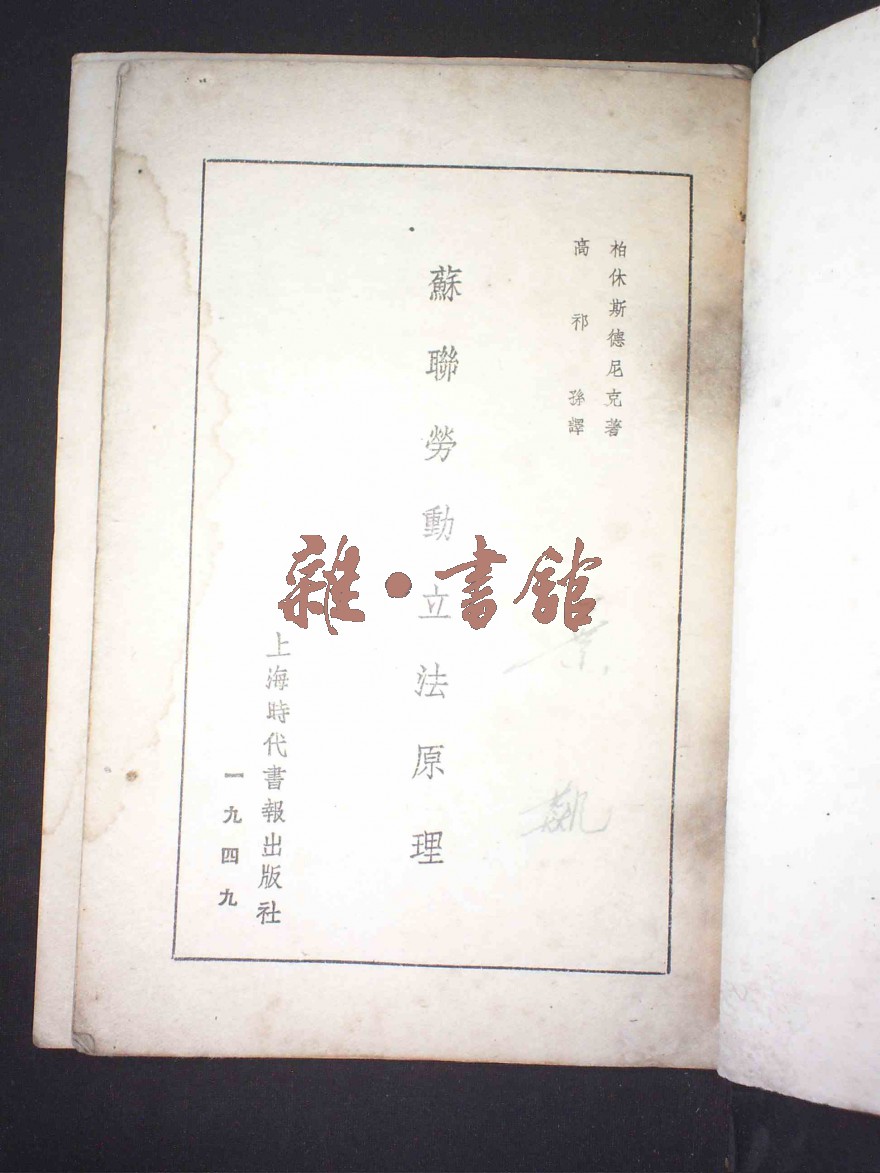 柏休斯德尼克著
高祁孫譯
蘇聯勞動立法原理
上海時代書報出版社
一九四九
雜·書館